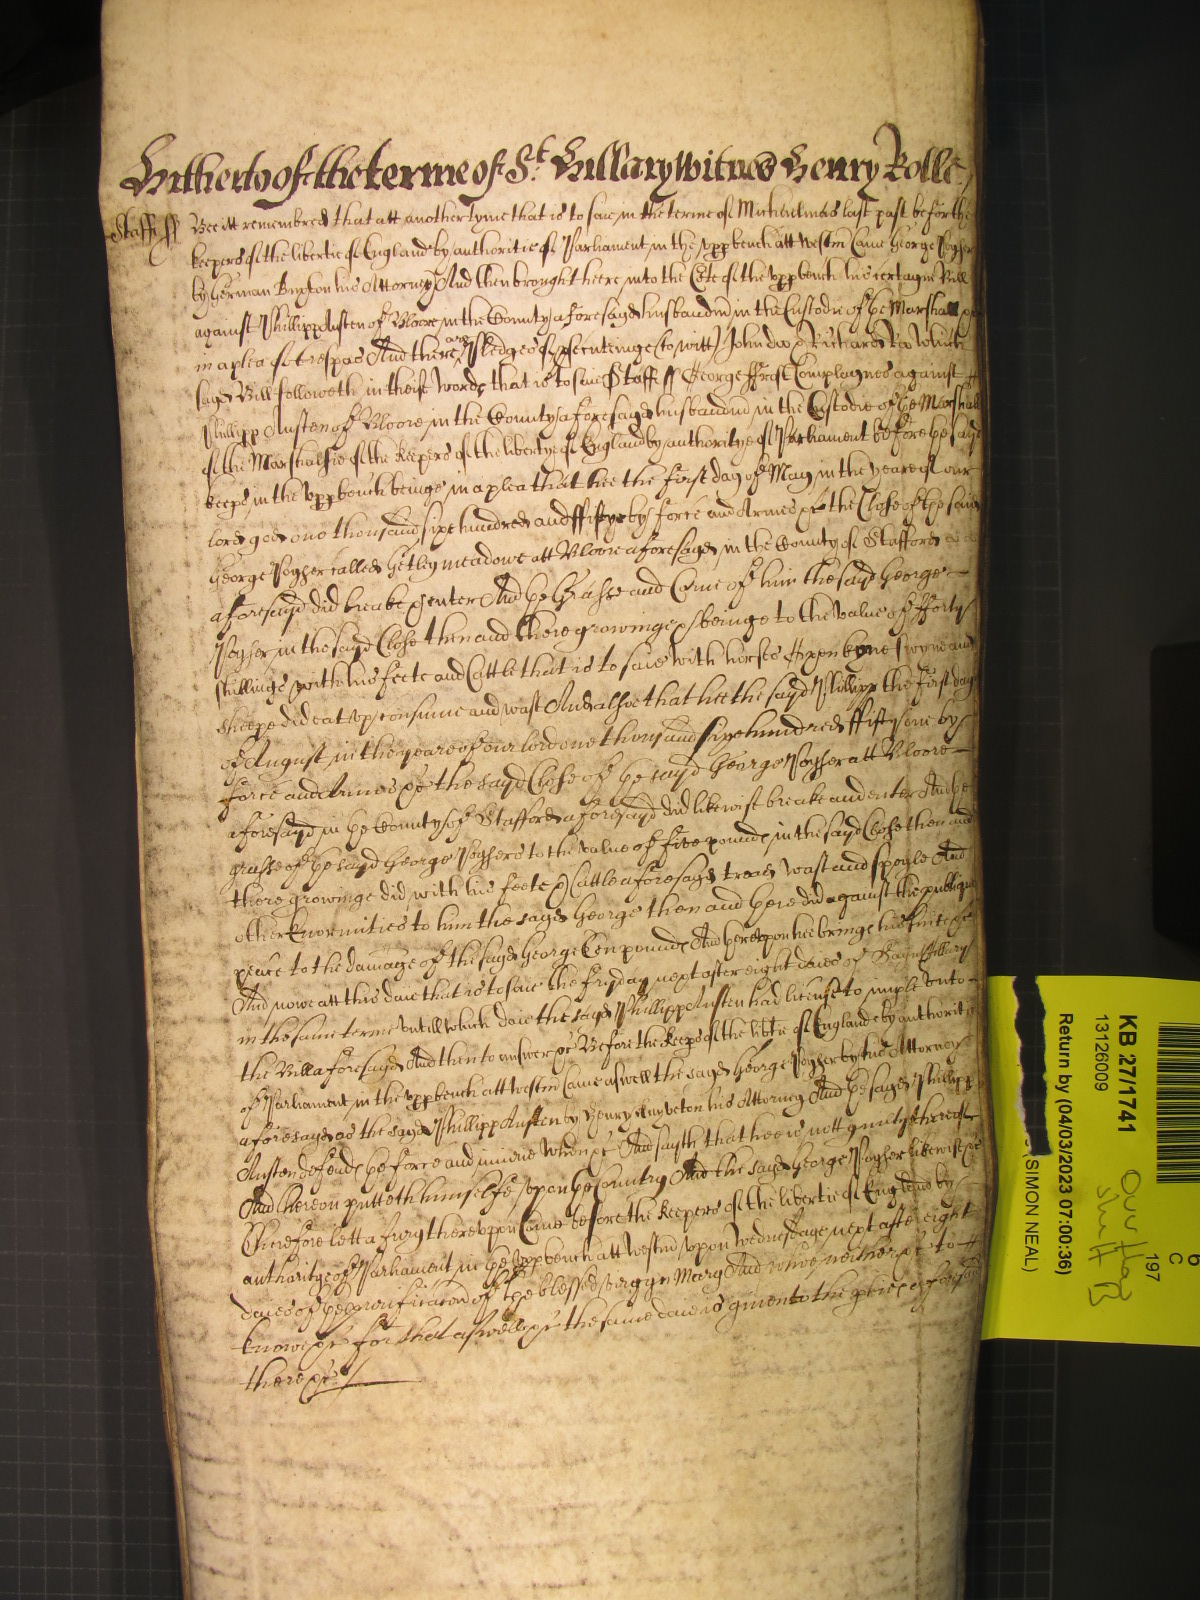 Hitherto of the terme of St. Hillary witnes Henry Rolle
Staff ss Bee itt remembred that att another tyme that is to saie in the terme of Michelmas last past before the
keepers of the libertie of England by authoritie of Parliament in the uppbench att Westm Came George
by German his Attorney And then brought heere into the Cte of the uppbench his certayne Bill
against Phillipp Austen of Bloore in the County aforesayd husbandm in the Custodie of the Marshall
in a plea of trespas And there are Pledges of psecuteinge (to witt) John doe & Richard Roe Which
sayd Bill followeth in theise words that is to saie Staff ss George Complaynes against
Phillipp Austen of Bloore in the County aforesayd husbandm in the Custodie of the Marshall
of the Marshalsie of the keepers of the liberty of England by authoritye of Parliament before the sayd
keeps in the uppbench beinge in a plea that hee the first day of May in the yeare of our
lord god one thousand sixe hundred and ffiftye by force and Armes &c the Close of the said
George called Hetley meadowe att Bloore aforesayd in the County of Stafford
aforesayd did breake & enter And the Grasse and Corne of him the sayd George
in the sayd Close then and there growinge & beinge to the value of fforty
shillings with his feete and Cattle that is to saie with horses Oxen kyne swyne and
sheepe did eat up consume and wast And alsoe that hee the sayd Phillipp the first day
of August in the yeare of our lord one thousand sixe hundred ffifty one by
force and Armes &c the sayd Close of the sayd George att Bloore
aforesayd in the County of Stafford aforesayd did likewise breake and enter And the
grasse of the sayd George to the value of five pounds in the sayd Close then and
there growinge did with his feete & Cattle aforesayd tread wast and spoyle And
other Enormities to him the sayd George then and there did against the publique
peace to the damage of the sayd George Ten pounds And thereupon hee brings his suite &c
And nowe att this daie that is to saie the fryday next after eight daies of Saynt Hillary
in the same terme untill which daie the sayd Phillipp Austen had license to imple unto
the Bill aforesayd And then to answer &c Before the keeps of the libtie of England by authoritie
of Parliament in the uppbench att Westm Came aswell the sayd George by his Attorney
aforesayd as the sayd Phillipp Austen by Henry his Attorney And the sayd Phillipp
Austen defends the force and iniurie when &c And sayth that hee is nott guilty thereof
And thereon putteth himselfe upon the Country And the sayd George likewise &c
Therefore lett a Jury thereupon Come before the keepers of the libertie of England by
authoritye of Parliament in the uppbench att Westm upon wednesdaye next after eight
daies of the purificacon of the blessed virgyn Mary And whoe neither &c to
knowe &c for that aswell &c the same daie is given to the pties aforesd
there &c
KB 27/1741
13126009
Return by (04/03/2023 07:00:36)
(SIMON NEAL)
197
C
6